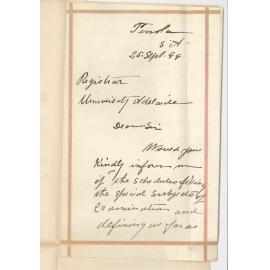 Penola
S.A.
25. Sept. 99
Registrar
University Adelaide
Dear Sir
Would you
Kindly inform me
if the schedules
the special subjects of
Examination and
defining as far as